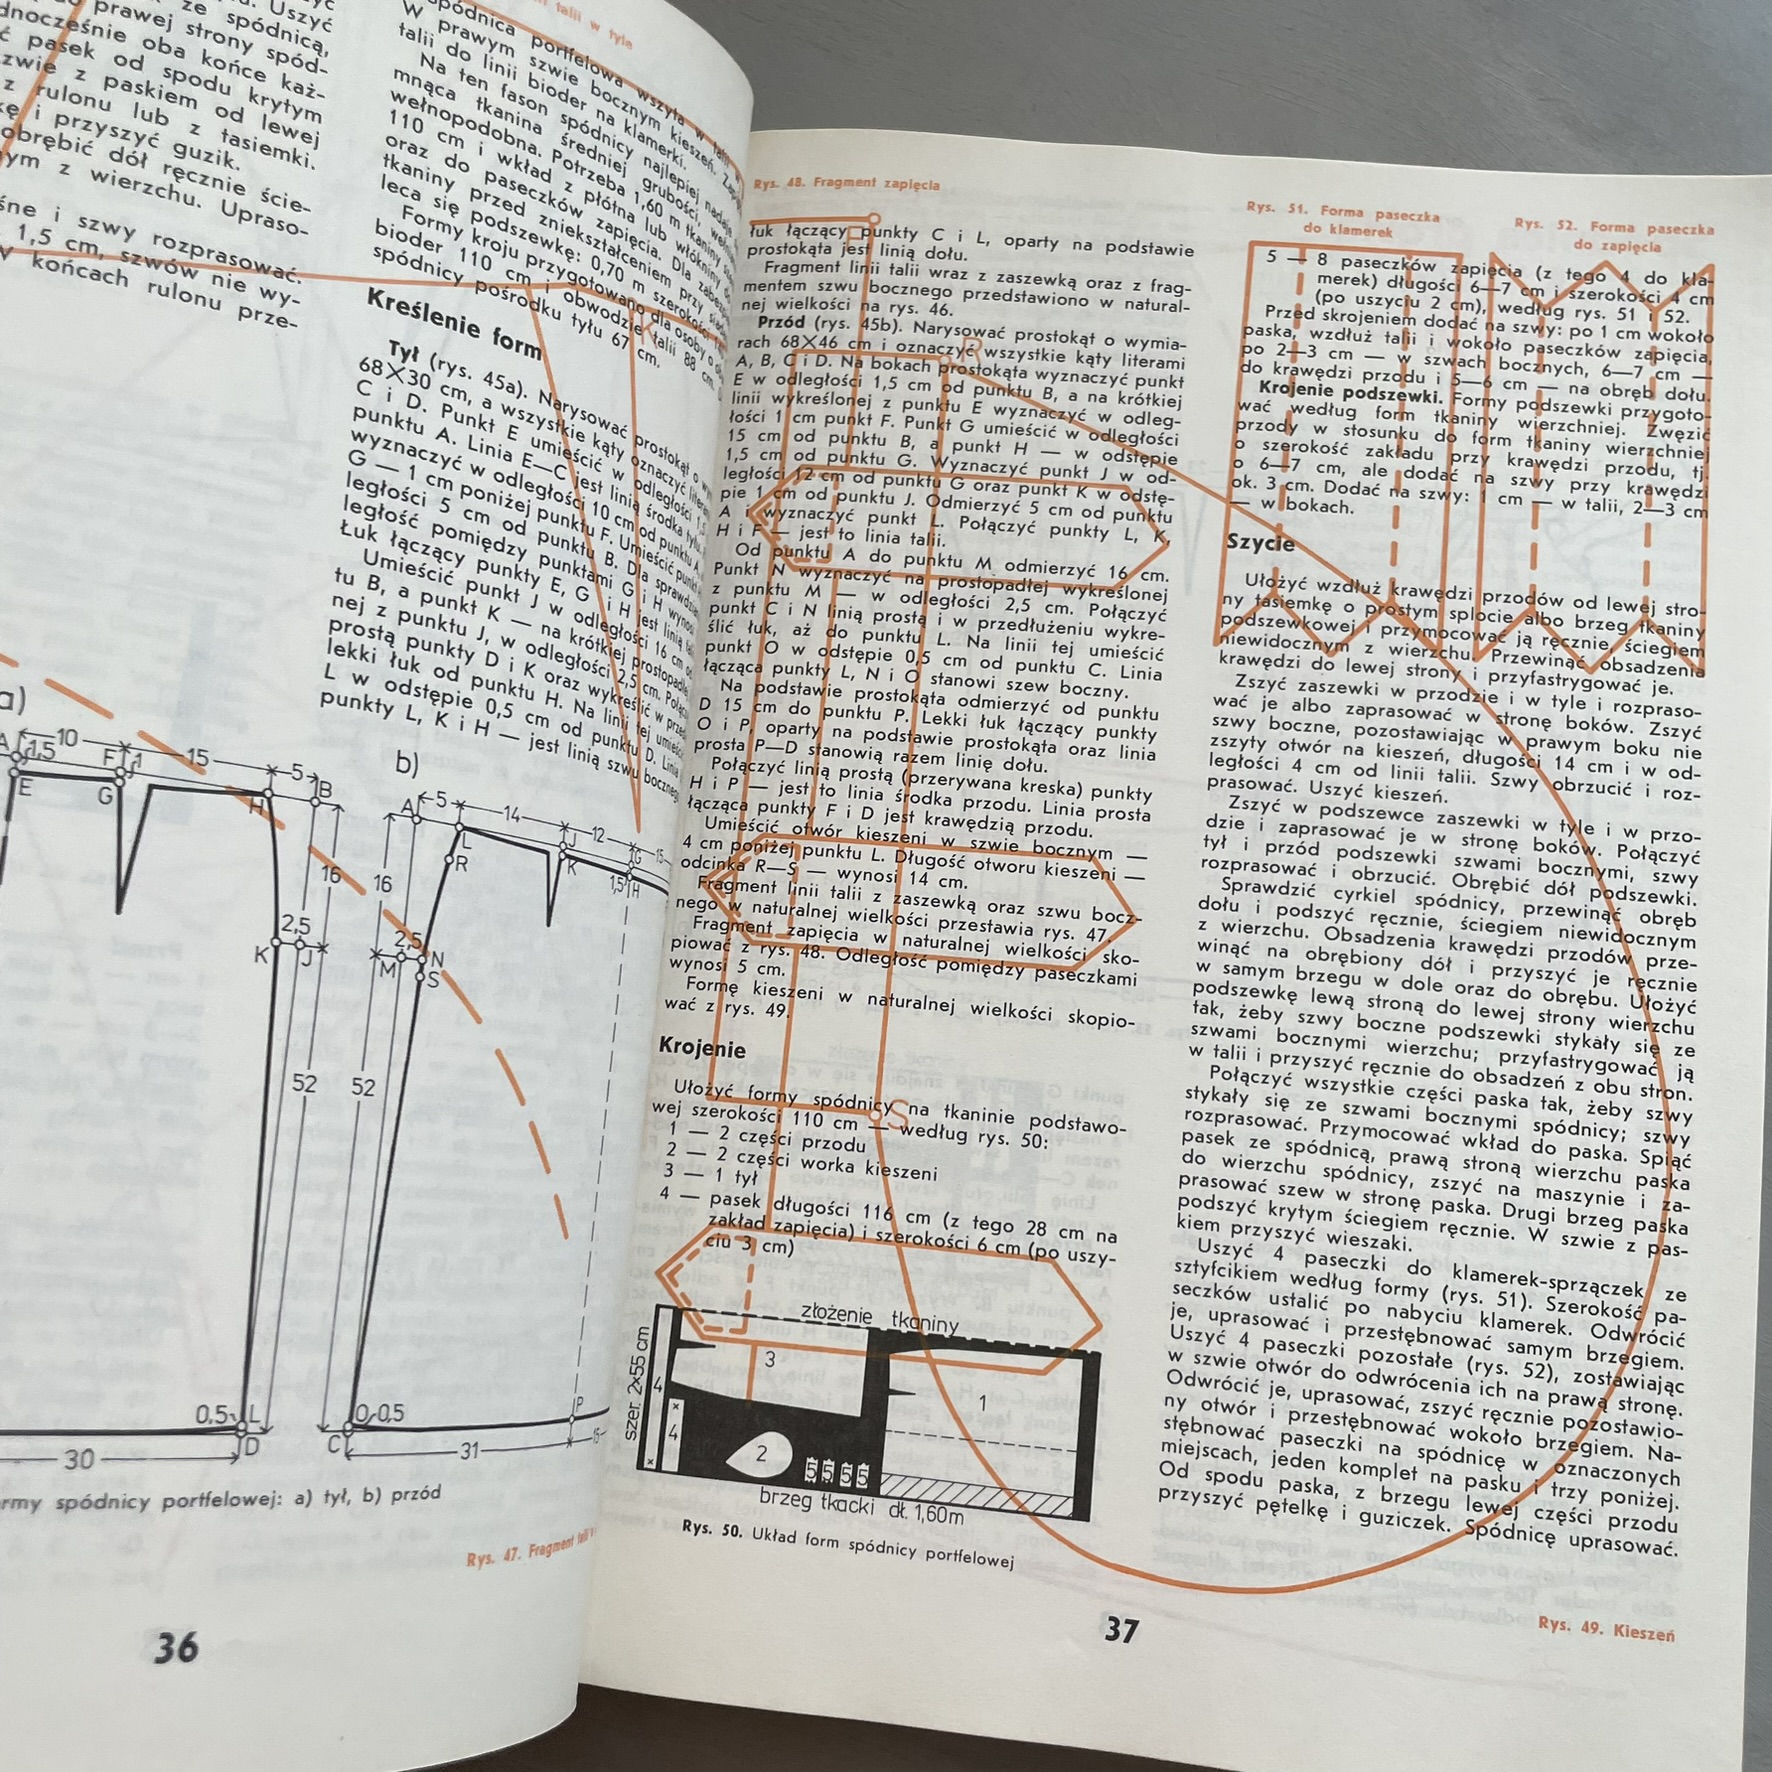 zyć
. Uszyć
ze spódnicą,
prawej strony spód-
dnocześnie oba końce każ-
ć pasek od spodu krytym
zwie z paskiem od lewej
z rulonu lub z tasiemki.
kę i przyszyć guzik.
obrębić dół ręcznie ście-
ym z wierzchu. Upraso-
śne i szwy rozprasować.
1,5 cm, szwów nie wy-
y końcach rulonu prze-
talii w tyle
Spódnica portfelowa wszyta w
W prawym szwie bocznym kieszeń. Zapię
talii do linii bioder na klamerki.
Na ten fason spódnicy najlepiej nadaje
mnąca tkanina średniej grubości, wełn
wełnopodobna. Potrzeba 1,60 m tkaniny
110 cm i wkład z płótna lub włókniny
oraz do paseczków zapięcia. Dla
tkaniny przed zniekształceniem przy
leca się podszewkę: 0,70 m szerokości
Formy kroju przygotowano dla osoby o
bioder 110 cm i obwodzie talii 88 cm.
spódnicy pośrodku tyłu 67 cm.
Kreślenie form
Tył (rys. 45a). Narysować prostokąt o
68×30 cm, a wszystkie kąty oznaczyć
C i D. Punkt E umieścić w odległości 1,5
punktu A. Linia E—C jest linią środka tyłu.
wyznaczyć w odległości 10 cm od punktu A,
G — 1 cm poniżej punktu F. Umieścić punkt
ległości 5 cm od punktu B. Dla
ległość pomiędzy punktami G i H wynosi
Łuk łączący punkty E, G i H jest linią
Umieścić punkt J w odległości 16 cm od
tu B, a punkt K — na krótkiej
nej z punktu J, w odległości 2,5 cm. Połączyć
prostą punkty D i K oraz wykreślić w
lekki łuk od punktu H. Na linii tej umieścić
L w odstępie 0,5 cm od punktu D. Linia
punkty L, K i H — jest linią szwu bocznego
a)
A 1,5 10 F 1 15 5 B
E G H
16
2,5
K J
52
0,5 L
D
30
b)
A 5 14 J 12 G 15
L
R K 1,5 H
16
2,5 N
M S
52
O 0,5 P
C 31 15
rmy spódnicy portfelowej: a) tył, b) przód
Rys. 47. Fragment talii
36
Rys. 48. Fragment zapięcia
łuk łączący punkty C i L, oparty na podstawie
prostokąta jest linią dołu.
Fragment linii talii wraz z zaszewką oraz z frag-
mentem szwu bocznego przedstawiono w natural-
nej wielkości na rys. 46.
Przód (rys. 45b). Narysować prostokąt o wymia-
rach 68×46 cm i oznaczyć wszystkie kąty literami
A, B, C i D. Na bokach prostokąta wyznaczyć punkt
E w odległości 1,5 cm od punktu B, a na krótkiej
linii wykreślonej z punktu E wyznaczyć w odleg-
łości 1 cm punkt F. Punkt G umieścić w odległości
15 cm od punktu B, a punkt H — w odstępie
1,5 cm od punktu G. Wyznaczyć punkt J w od-
ległości 12 cm od punktu G oraz punkt K w odstę-
pie 1 cm od punktu J. Odmierzyć 5 cm od punktu
A i wyznaczyć punkt L. Połączyć punkty L, K,
H i F — jest to linia talii.
Od punktu A do punktu M odmierzyć 16 cm.
Punkt N wyznaczyć na prostopadłej wykreślonej
z punktu M — w odległości 2,5 cm. Połączyć
punkt C i N linią prostą i w przedłużeniu wykre-
ślić łuk, aż do punktu L. Na linii tej umieścić
punkt O w odstępie 0,5 cm od punktu C. Linia
łącząca punkty L, N i O stanowi szew boczny.
Na podstawie prostokąta odmierzyć od punktu
D 15 cm do punktu P. Lekki łuk łączący punkty
O i P, oparty na podstawie prostokąta oraz linia
prosta P—D stanowią razem linię dołu.
Połączyć linią prostą (przerywana kreska) punkty
H i P — jest to linia środka przodu. Linia prosta
łącząca punkty F i D jest krawędzią przodu.
Umieścić otwór kieszeni w szwie bocznym —
4 cm poniżej punktu L. Długość otworu kieszeni —
odcinka R—S — wynosi 14 cm.
Fragment linii talii z zaszewką oraz szwu bocz-
nego w naturalnej wielkości przestawia rys. 47.
Fragment zapięcia w naturalnej wielkości sko-
piować z rys. 48. Odległość pomiędzy paseczkami
wynosi 5 cm.
Formę kieszeni w naturalnej wielkości skopio-
wać z rys. 49.
R
S
Krojenie
Ułożyć formy spódnicy na tkaninie podstawo-
wej szerokości 110 cm — według rys. 50:
1 — 2 części przodu
2 — 2 części worka kieszeni
3 — 1 tył
4 — pasek długości 116 cm (z tego 28 cm na
zakład zapięcia) i szerokości 6 cm (po uszy-
ciu 3 cm)
złożenie tkaniny
szer. 2×55 cm
4
4
3
1
2
5 5 5 5
brzeg tkacki dł. 1,60m
Rys. 50. Układ form spódnicy portfelowej
37
Rys. 51. Forma paseczka
do klamerek
Rys. 52. Forma paseczka
do zapięcia
5 — 8 paseczków zapięcia (z tego 4 do kla-
merek) długości 6—7 cm i szerokości 4 cm
(po uszyciu 2 cm), według rys. 51 i 52.
Przed skrojeniem dodać na szwy: po 1 cm wokoło
paska, wzdłuż talii i wokoło paseczków zapięcia,
po 2—3 cm — w szwach bocznych, 6—7 cm —
do krawędzi przodu i 5—6 cm — na obręb dołu.
Krojenie podszewki. Formy podszewki przygoto-
wać według form tkaniny wierzchniej. Zwęzić
przody w stosunku do form tkaniny wierzchniej
o szerokość zakładu przy krawędzi przodu, tj.
o 6—7 cm, ale dodać na szwy przy krawędzi
ok. 3 cm. Dodać na szwy: 1 cm — w talii, 2—3 cm
— w bokach.
Szycie
Ułożyć wzdłuż krawędzi przodów od lewej stro-
ny tasiemkę o prostym splocie albo brzeg tkaniny
podszewkowej i przymocować ją ręcznie, ściegiem
niewidocznym z wierzchu. Przewinąć obsadzenia
krawędzi do lewej strony i przyfastrygować je.
Zszyć zaszewki w przodzie i w tyle i rozpraso-
wać je albo zaprasować w stronę boków. Zszyć
szwy boczne, pozostawiając w prawym boku nie
zszyty otwór na kieszeń, długości 14 cm i w od-
ległości 4 cm od linii talii. Szwy obrzucić i roz-
prasować. Uszyć kieszeń.
Zszyć w podszewce zaszewki w tyle i w przo-
dzie i zaprasować je w stronę boków. Połączyć
tył i przód podszewki szwami bocznymi, szwy
rozprasować i obrzucić. Obrębić dół podszewki.
Sprawdzić cyrkiel spódnicy, przewinąć obręb
dołu i podszyć ręcznie, ściegiem niewidocznym
z wierzchu. Obsadzenia krawędzi przodów prze-
winąć na obrębiony dół i przyszyć je ręcznie
w samym brzegu w dole oraz do obrębu. Ułożyć
podszewkę lewą stroną do lewej strony wierzchu
tak, żeby szwy boczne podszewki stykały się ze
szwami bocznymi wierzchu; przyfastrygować ją
w talii i przyszyć ręcznie do obsadzeń z obu stron.
Połączyć wszystkie części paska tak, żeby szwy
stykały się ze szwami bocznymi spódnicy; szwy
rozprasować. Przymocować wkład do paska. Spiąć
pasek ze spódnicą, prawą stroną wierzchu paska
do wierzchu spódnicy, zszyć na maszynie i za-
prasować szew w stronę paska. Drugi brzeg paska
podszyć krytym ściegiem ręcznie. W szwie z pas-
kiem przyszyć wieszaki.
Uszyć 4 paseczki do klamerek-sprzączek ze
sztyfcikiem według formy (rys. 51). Szerokość pa-
seczków ustalić po nabyciu klamerek. Odwrócić
je, uprasować i przestębnować samym brzegiem.
Uszyć 4 paseczki pozostałe (rys. 52), zostawiając
w szwie otwór do odwrócenia ich na prawą stronę.
Odwrócić je, uprasować, zszyć ręcznie pozostawio-
ny otwór i przestębnować wokoło brzegiem. Na-
stębnować paseczki na spódnicę w oznaczonych
miejscach, jeden komplet na pasku i trzy poniżej.
Od spodu paska, z brzegu lewej części przodu
przyszyć pętelkę i guziczek. Spódnicę uprasować.
Rys. 49. Kieszeń